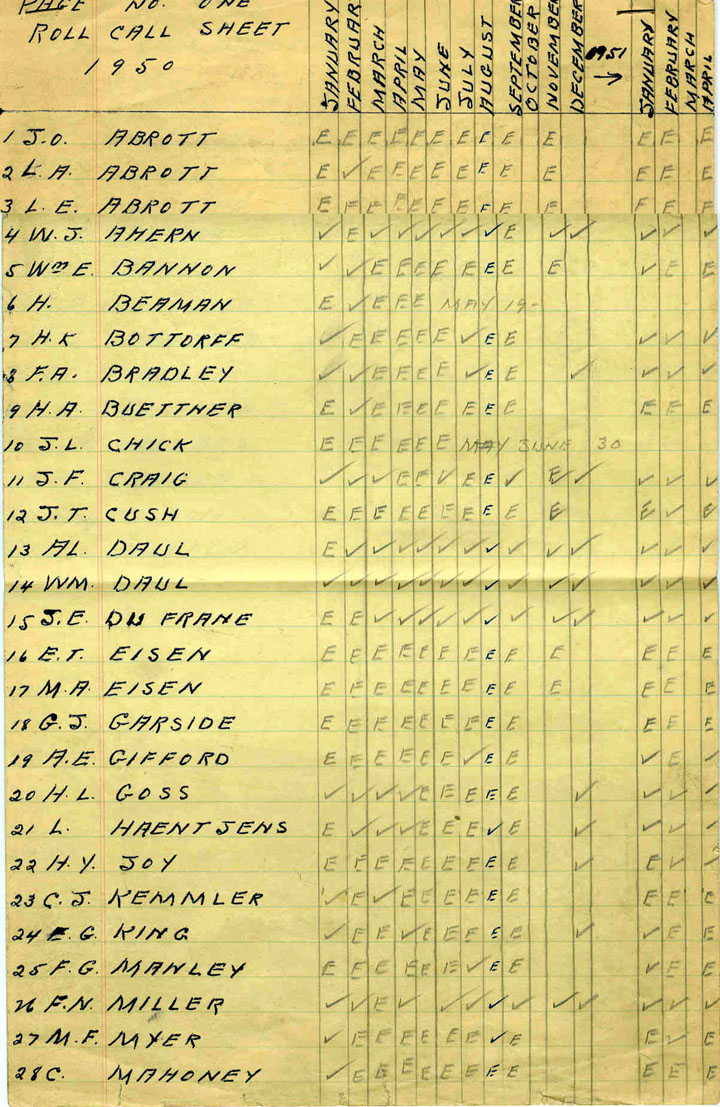 PAGE NO. ONE
ROLL CALL SHEET
1950
JANUARY FEBRUARY MARCH APRIL MAY JUNE JULY AUGUST SEPTEMBER OCTOBER NOVEMBER DECEMBER 1951 → JANUARY FEBRUARY MARCH APRIL
1 J.O. ABROTT E E E E E E E E E E E E E
2 L.A. ABROTT E ✓ E E E E E E E E E E E
3 L.E. ABROTT E E E E E E E E E E E E E
4 W.J. AHERN ✓ E ✓ ✓ ✓ ✓ ✓ ✓ E ✓ ✓ ✓ ✓ ✓
5 WM E. BANNON ✓ ✓ E E E E E E E E ✓ E E
6 H. BEAMAN E ✓ E E E MAY 19-
7 H.K BOTTORFF ✓ E E E E E ✓ E E ✓ ✓ ✓
8 F.A. BRADLEY ✓ ✓ E E E E ✓ E E ✓ ✓ ✓ ✓
9 H.A. BUETTNER E ✓ E E E E E E E E E E
10 J.L. CHICK E E E E E E JUNE 30
11 J.F. CRAIG ✓ ✓ ✓ E E ✓ E E ✓ E ✓ ✓ ✓ ✓
12 J.T. CUSH E E E E E E E E E E E ✓ E
13 AL. DAUL E ✓ ✓ ✓ ✓ ✓ ✓ ✓ ✓ ✓ ✓ ✓ ✓ ✓
14 WM. DAUL ✓ ✓ ✓ ✓ ✓ ✓ ✓ ✓ ✓ ✓ ✓ ✓ ✓ ✓
15 J.E. DU FRANE E E ✓ ✓ ✓ ✓ ✓ ✓ ✓ ✓ ✓ ✓ ✓ ✓
16 E.T. EISEN E E E E E E E E E E E E E
17 M.A. EISEN E E E E E E E E E E E E E
18 G.J. GARSIDE E E E E E E E E E E E E
19 A.E. GIFFORD E E E E E E ✓ E E ✓ E ✓
20 H.L. GOSS ✓ ✓ ✓ ✓ E E E E E ✓ ✓ ✓ ✓
21 L. HAENTJENS E ✓ ✓ ✓ E E E ✓ E ✓ ✓ ✓ ✓
22 H.Y. JOY E E E E E E E E E ✓ E ✓ ✓
23 C.J. KEMMLER ✓ E ✓ E E E E E E E E E
24 E.G. KING ✓ E E ✓ E E E E E ✓ ✓ E E
25 F.G. MANLEY E E E E E E ✓ E E ✓ E E
26 F.N. MILLER ✓ ✓ E ✓ ✓ ✓ ✓ ✓ ✓ ✓ ✓ ✓ ✓
27 M.F. MYER ✓ E E E E E E ✓ E E ✓ E
28 C. MAHONEY ✓ E E E E E E E E E E E